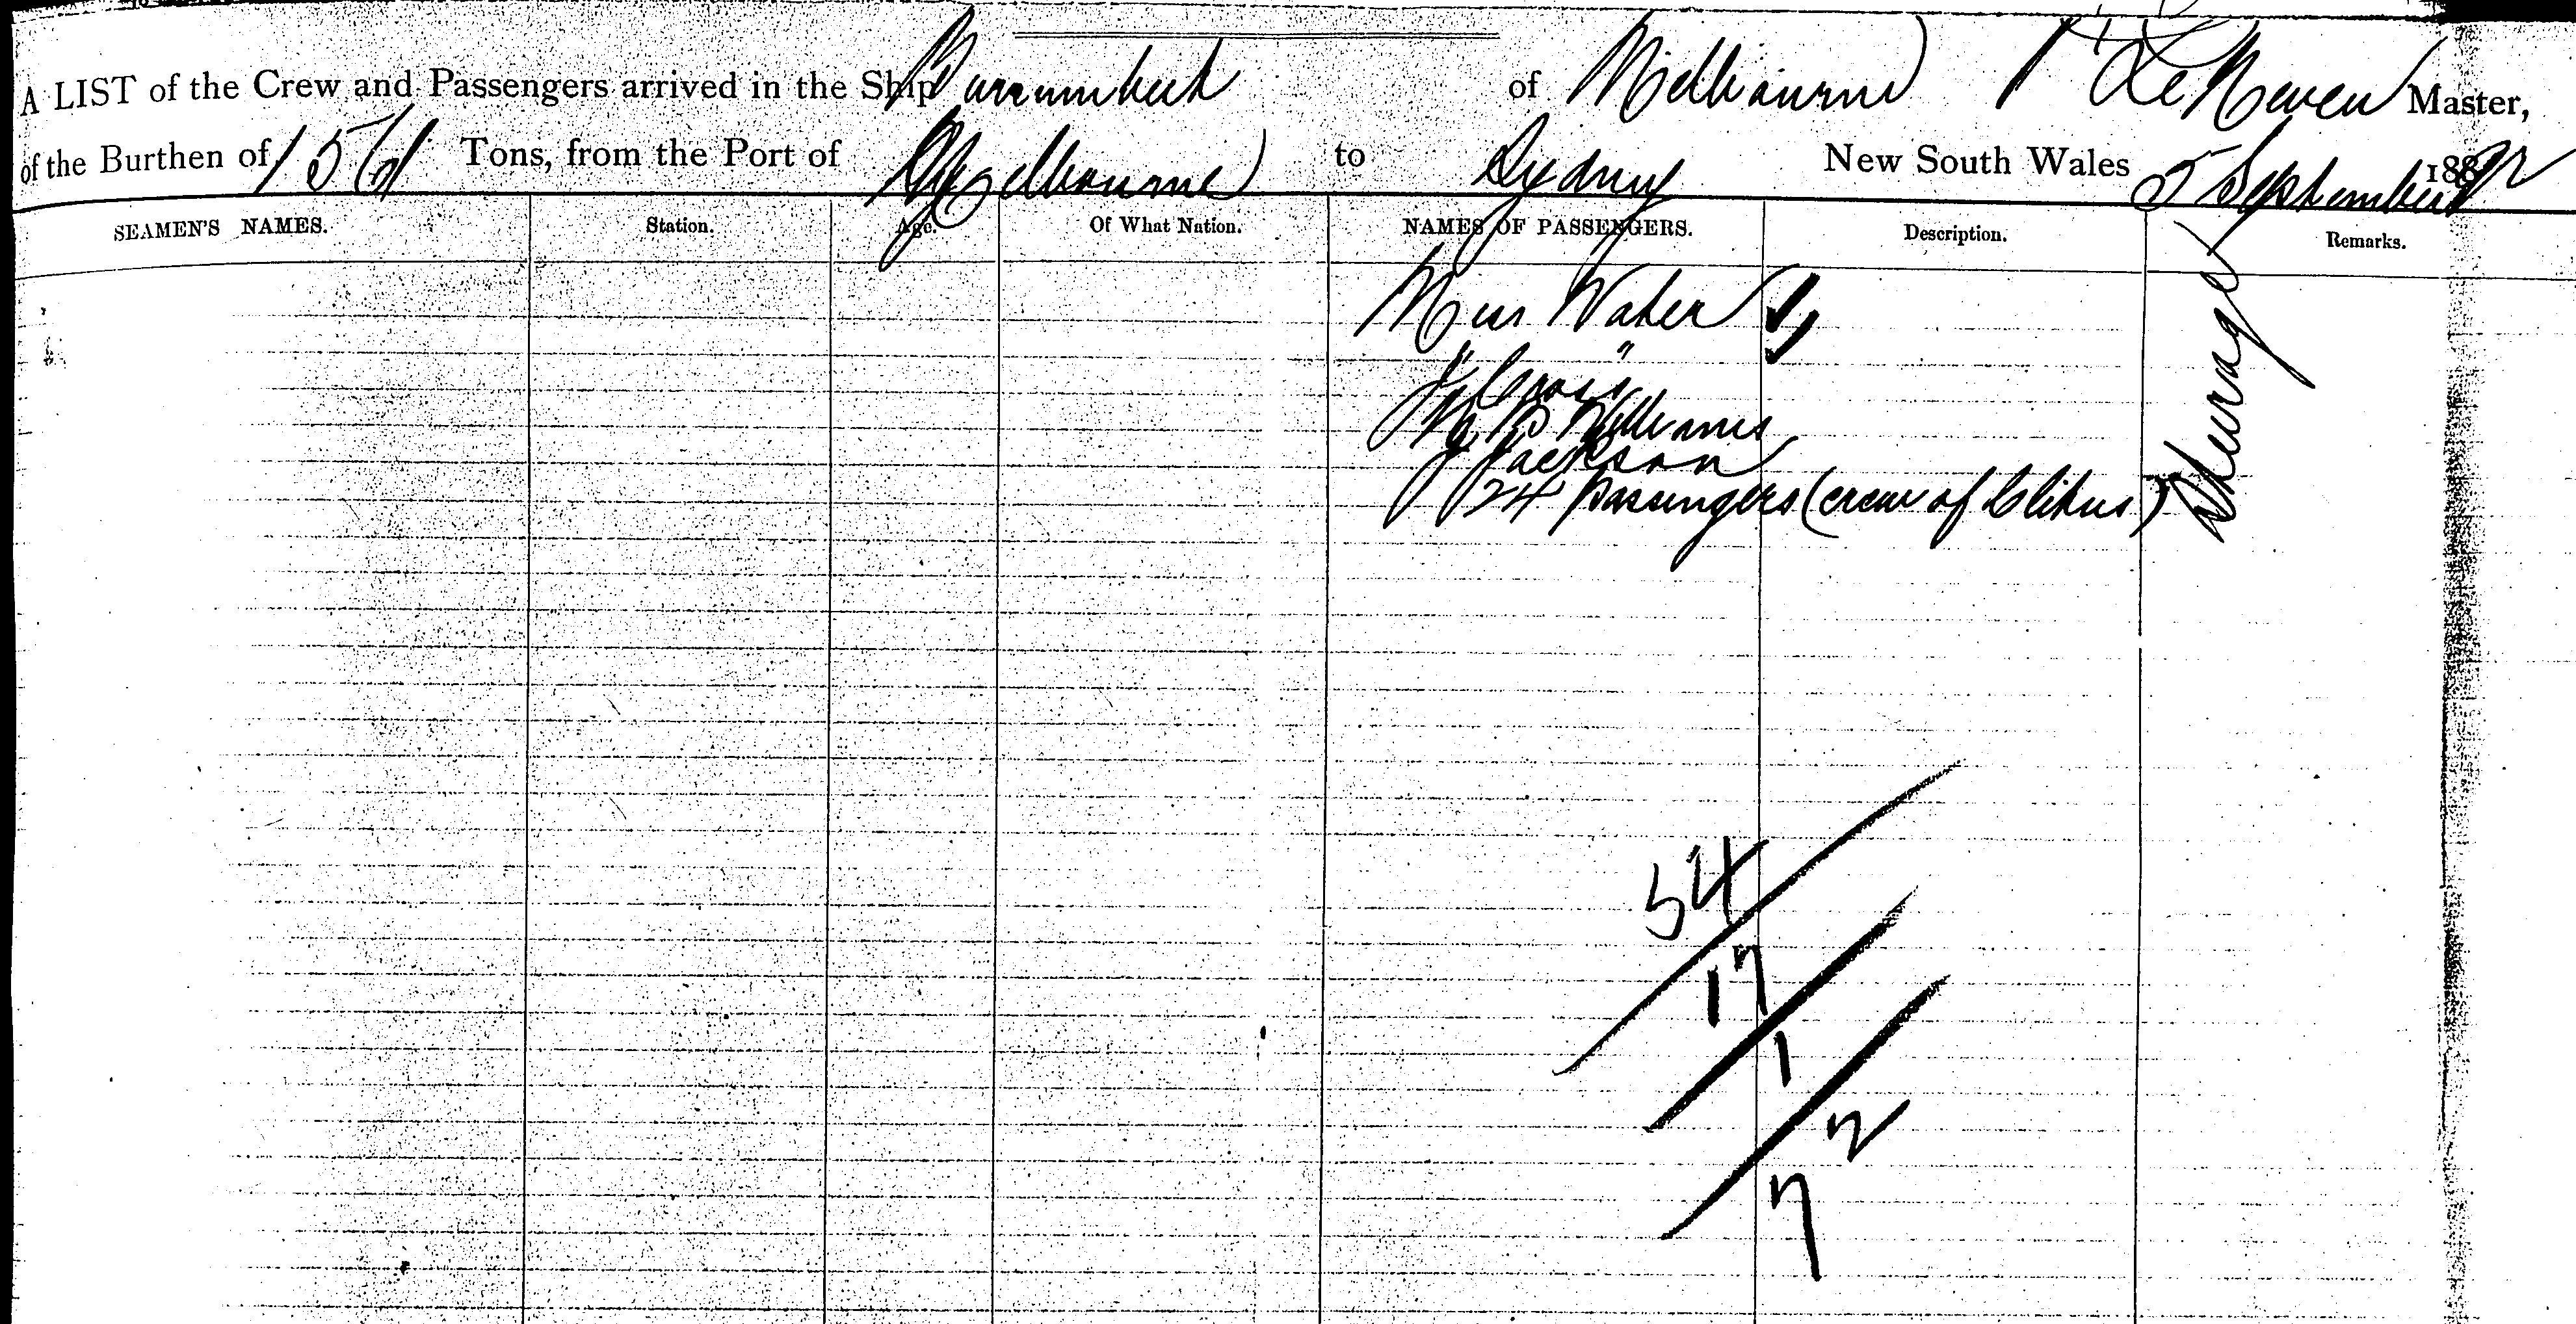 A LIST of the Crew and Passengers arrived in the Ship Burrumbeet of Melbourne Master,
of the Burthen of Tons, from the Port of Melbourne to Sydney New South Wales 5 September 1882
SEAMEN'S NAMES. Station. Age. Of What Nation. NAMES OF PASSENGERS. Description. Remarks.
Miss
"
J Cross
Williams
J Jackson
24 passengers (crew of Clitus)
Steerage
54
17
1
2
7